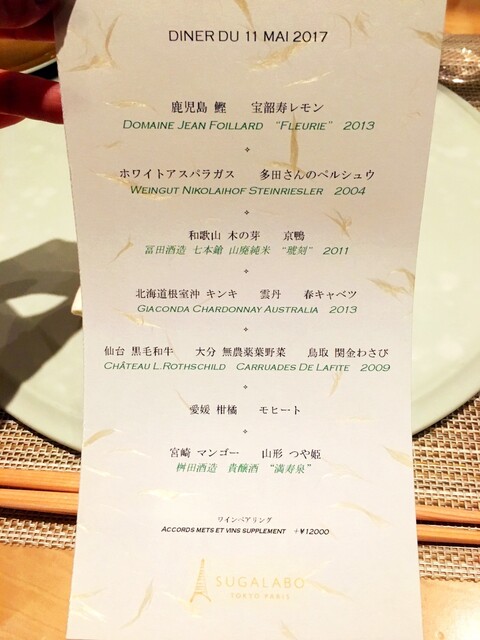 DINER DU 11 MAI 2017
鹿児島 鰹　宝韶寿レモン
DOMAINE JEAN FOILLARD "FLEURIE" 2013
ホワイトアスパラガス　多田さんのペルシュウ
WEINGUT NIKOLAIHOF STEINRIESLER 2004
和歌山 木の芽　京鴨
冨田酒造 七本鎗 山廃純米 "琥刻" 2011
北海道根室沖 キンキ　雲丹　春キャベツ
GIACONDA CHARDONNAY AUSTRALIA 2013
仙台 黒毛和牛　大分 無農薬葉野菜　鳥取 関金わさび
CHÂTEAU L.ROTHSCHILD CARRUADES DE LAFITE 2009
愛媛 柑橘　モヒート
宮崎 マンゴー　山形 つや姫
桝田酒造 貴醸酒 "満寿泉"
ワインペアリング
ACCORDS METS ET VINS SUPPLEMENT +¥12000
SUGALABO
TOKYO PARIS